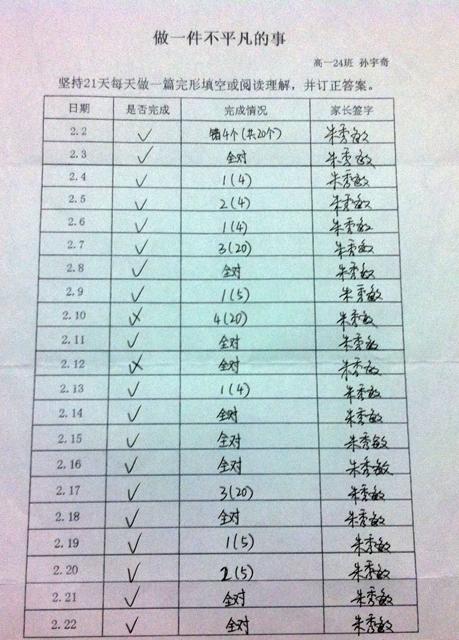 做一件不平凡的事
高一24班 孙宇奇
坚持21天每天做一篇完形填空或阅读理解，并订正答案。
日期 是否完成 完成情况 家长签字
2.2 ✓ 错4个(共20个) 朱秀敏
2.3 ✓ 全对 朱秀敏
2.4 ✓ 1(4) 朱秀敏
2.5 ✓ 2(4) 朱秀敏
2.6 ✓ 1(4) 朱秀敏
2.7 ✓ 3(20) 朱秀敏
2.8 ✓ 全对 朱秀敏
2.9 ✓ 1(5) 朱秀敏
2.10 ✗ 4(20) 朱秀敏
2.11 ✓ 全对 朱秀敏
2.12 ✗ 全对 朱秀敏
2.13 ✓ 1(4) 朱秀敏
2.14 ✓ 全对 朱秀敏
2.15 ✓ 全对 朱秀敏
2.16 ✓ 全对 朱秀敏
2.17 ✓ 3(20) 朱秀敏
2.18 ✓ 全对 朱秀敏
2.19 ✓ 1(5) 朱秀敏
2.20 ✓ 2(5) 朱秀敏
2.21 ✓ 全对 朱秀敏
2.22 ✓ 全对 朱秀敏